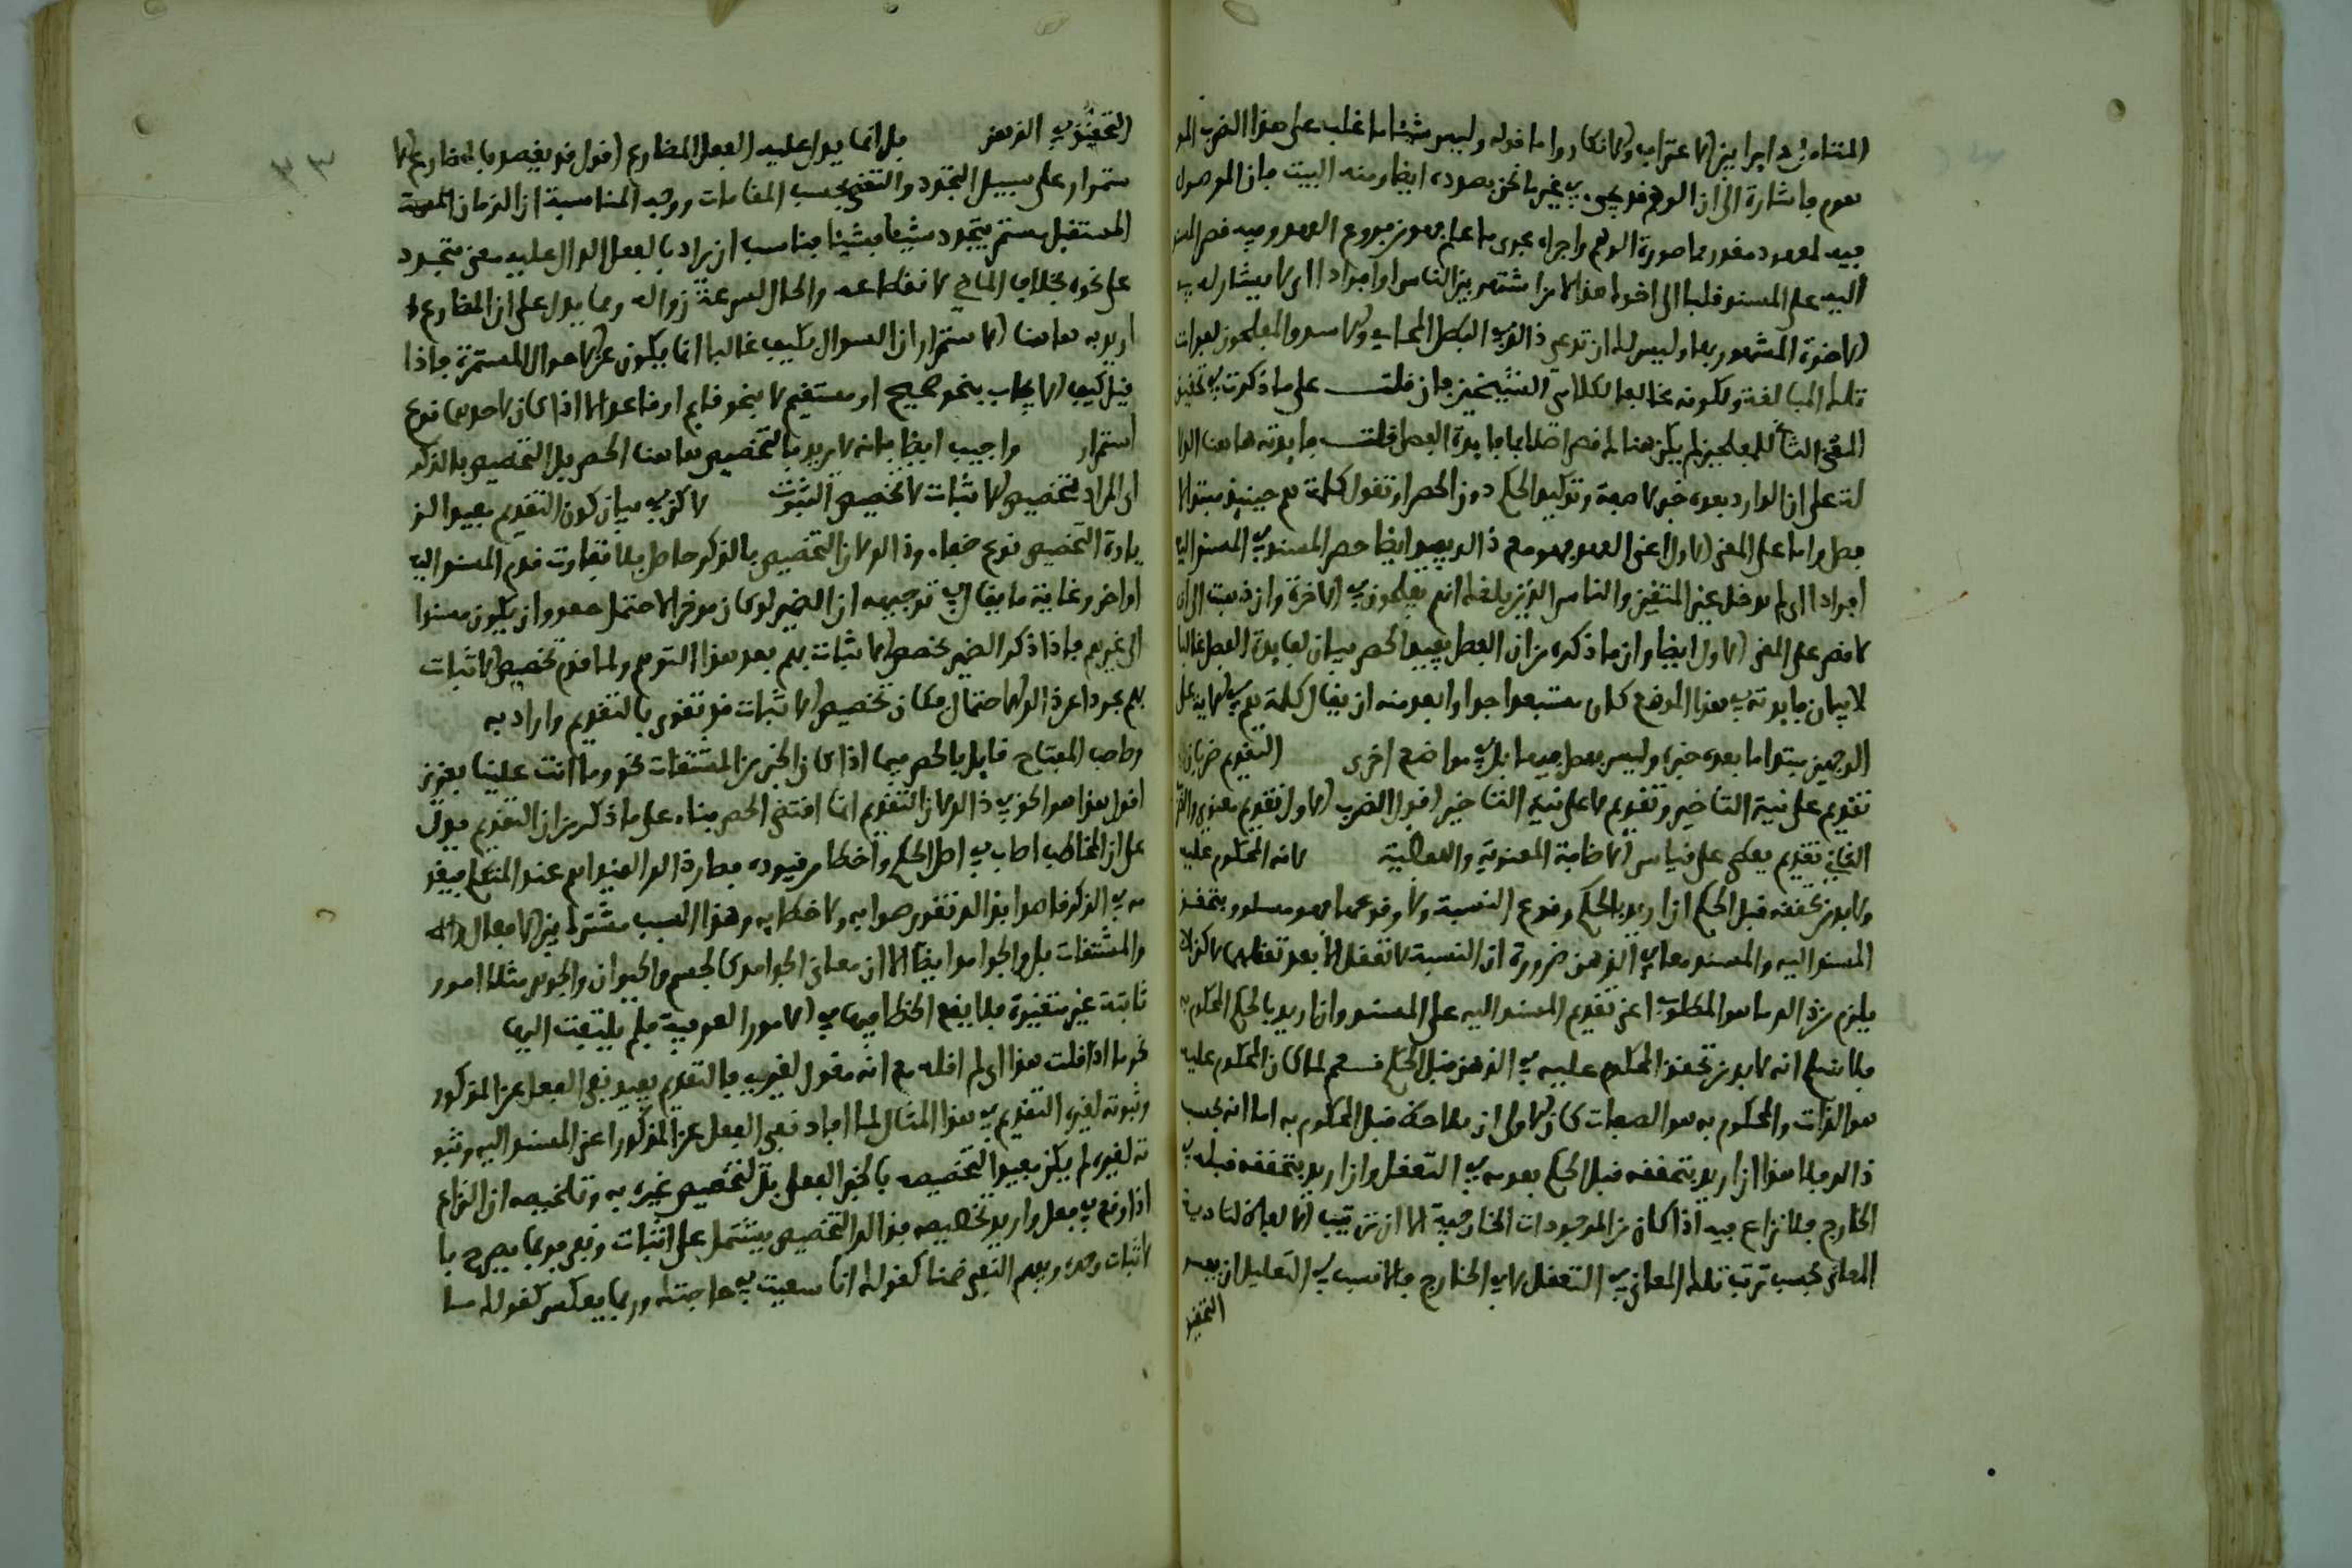 المتنامى دايرا بين الاعتراف والانكار واما قوله وليس شيئا ما غلب على هذا الضرب المو
هوم باشارة الى ان الوهم قد يجيء في غير ما نحن بصدده ايضا ومنه البيت فان الموصول
فيه لمعهود مقدر بما صوره الوهم واجراه مجرى ما علم فهو من فروع العهد وفيه قصر المسند
اليه على المسند قلبا اى اخوك هذا لا من اشتهر بين الناس او افرادا اى لا يشارك في
الاخوة المشهور بها وليس لك ان تدعى ذالك في البطل المحامى ولا سدوا المفلحون لفوات
تلك المبالغة ولكونه مخالفا لكلامى الشيخين فان قلت على ما ذكرت في تحقيق
المعنى الثانى للمفلحين لم يكن هناك قصر اصلا فما فايدة الفصل قلت فايدته هاهنا الدلا
لة على ان الوارد بعده خبر لا صفة وتوكيد الحكم دون الحصر او تقول كلمة هم حينيذ مبتدا لا
فصل واما على المعنى الاول اعنى العهد فهو مع ذالك يفيد ايضا حصر المسند في المسند اليه
افرادا اى لم يدخل غير المتقين والناس الذين بلغك انهم يفلحون في الاخرة وان ذهبت الى ان
لا قصر على المعنى الاول ايضا وان ما ذكره من ان الفصل يفيد الحصر بيان لفايدة الفصل غالبا
لا بيان فايدته في هذا الموضع كان مستبعدا جدا وابعد منه ان يقال كلمة هم في الاية على
الوجهين مبتدا ما بعده خبره وليس بفصل فيها بل في مواضع اخرى التقديم ضربان
تقديم على نية التاخير وتقديم لا على نية التاخير اقول الضرب الاول تقديم معنوى والضر
الثانى تقديم لفظى على قياس الاضافة المعنوية واللفظية لانه المحكوم عليه
ولا بد من تحققه قبل الحكم ان اريد بالحكم وقوع النسبة ولا وقوعها فهو مسلم ويتحقق
المسند اليه والمسند معا في الذهن ضرورة ان النسبة لا تعقل الا بعد تعقلهما لاكن لا
يلزم من ذالك ما هو المطلوب اعنى تقديم المسند اليه على المسند وان اريد بالحكم المحكوم به
فلا نسلم انه لا بد من تحقق المحكوم عليه في الذهن قبل الحكم نعم لما كان المحكوم عليه
هو الذات والمحكوم به هو الصفات كان الاولى ان يلاحظ قبل المحكوم به اما انه يجب
ذالك فلا هذا ان اريد بتحققه قبل الحكم بعديه في التعقل وان اريد بتحققه قبله في
الخارج فلا نزاع فيه اذا كان من الموجودات الخارجية الا ان ترتيب الالفاظ لتادية
المعانى بحسب ترتب تلك المعانى في التعقل لا في الخارج فالانسب في التعليل ان يعتبر
التحقق
التحقق في الذهن بل انما يدل عليه الفعل المضارع اقول قد يقصد بالمضارع الا
ستمرار على سبيل التجدد والتقضى بحسب المقامات ووجه المناسبة ان الزمان
المستقبل يستمر يتجدد شيئا بشيئا فناسب ان يراد بالفعل الدال عليه معنى متجدد
على نحوه بخلاف الماضى لانقطاعه والحال لسرعة زواله ومما يدل على ان المضارع
اريد به هاهنا الاستمرار ان السوال بكيف غالبا انما يكون عن الاحوال المستمرة فاذا
قيل كيف لا يجاب بنحو صحيح او مستقيم لا بنحو قايم او قاعد الا اذا كان لاحدهما نوع
استمرار واجيب ايضا بانه لا يريد بالتخصيص هاهنا الحصر بل التخصيص بالذكر
اى المراد تخصيص الاثبات لا تخصيص الثبوت لاكن في بيان كون التقديم مفيد الز
يادة التخصيص نوع خفاء وذالك لان التخصيص بالذكر حاصل بلا تفاوت قدم المسند اليه
او اخر وغاية ما يقال في توجيهه ان الضمير لو كان موخرا لاحتمل معه وان يكون مسندا
الى غيرهم فاذا ذكر الضمير تخصص الاثبات بهم بعد هذا التوهم ولما قدم تخصيص الاثبات
بهم مجردا عن ذالك الاحتمال فكان تخصيص الاثبات قد تقوى بالتقديم واراد به
وصاحب المفتاح قايل بالحصر فيما اذا كان الخبر من المشتقات نحو وما انت علينا بعزيز
اقول هذا هو الحق في ذالك لان التقديم انما اقتضى الحصر بناء على ما ذكر من ان التقديم يدل
على ان المخاطب اصاب في اصل الحكم واخطا في قيوده فصار ذالك القيد اهم عند المتكلم فيقد
مه في الذكر قاصدا بذالك تقرير صوابه ولا خطابه وهذا السبب مشترك بين الافعال
والمشتقات بل والجوامد ايضا الا ان معانى الجوامد كالجسم والحيوان والجوهر مثلا امور
ثابتة غير متغيرة فلما يقع الخطا فيها في الامور العرفية فلم يلتفت اليها
نحو ما اذا قلت هذا اى لم اقله مع انه مقول لغيرى فالتقديم يفيد نفى الفعل عن المذكور
وثبوته لغيره التقديم في هذا المثال لما افاد نفى الفعل عن المذكور اعنى المسند اليه وثبو
ته لغيره لم يكن مفيدا لتخصيصه بالخبر الفعلى بل لتخصيص غيره به وتلخيصه ان النزاع
اذا وقع في فعل واريد تخصيصه فذالك التخصيص يشتمل على اثبات ونفى فربما يصرح با
لاثبات وحده ويفهم النفى ضمنا كقولك انا سعيت في حاجتك وربما يعكس كقولك ما